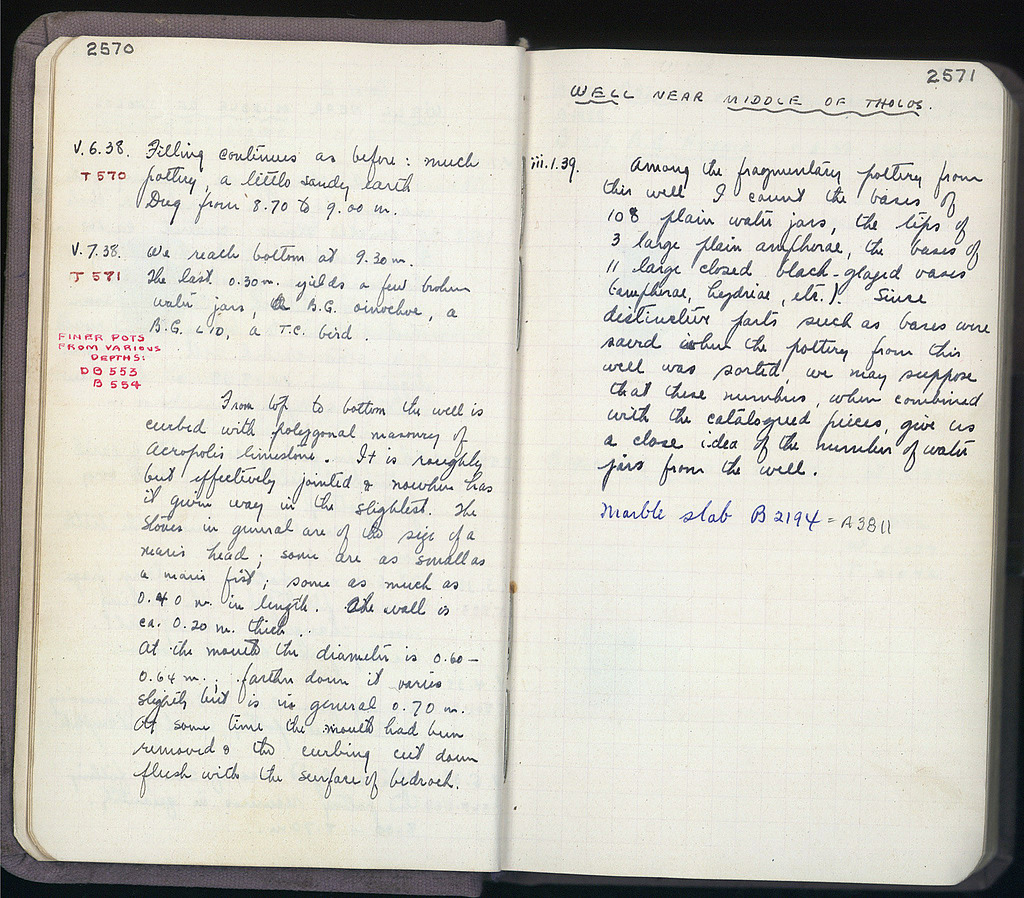 2570
V. 6. 38. Filling continues as before: much
T 570 pottery, a little sandy earth
Dug from 8.70 to 9.00 m.
V. 7. 38. We reach bottom at 9.30 m.
T 571 The last 0.30 m. yields a few broken
water jars, a B.G. oinochoe, a
B.G. a T.C. bird.
FINER POTS
FROM VARIOUS
DEPTHS:
DB 553
B 554
From top to bottom the well is
curbed with polygonal masonry of
Acropolis limestone. It is roughly
but effectively jointed & nowhere has
it given way in the slightest. The
stones in general are of the size of a
man's head; some are as small as
a man's fist; some as much as
0.40 m. in length. The wall is
ca. 0.20 m. thick..
At the mouth the diameter is 0.60-
0.64 m.; farther down it varies
slightly but is in general 0.70 m.
At some time the mouth had been
removed & the curbing cut down
flush with the surface of bedrock.
2571
WELL NEAR MIDDLE OF THOLOS.
iii.1.39. Among the fragmentary pottery from
this well I count the bases of
108 plain water jars, the lips of
3 large plain amphorae, the bases of
11 large closed black-glazed vases
(amphorae, hydriae, etc.). Since
distinctive parts such as bases were
saved when the pottery from this
well was sorted, we may suppose
that these numbers, when combined
with the catalogued pieces, give us
a close idea of the number of water
jars from the well.
Marble slab B 2194 = A 3811